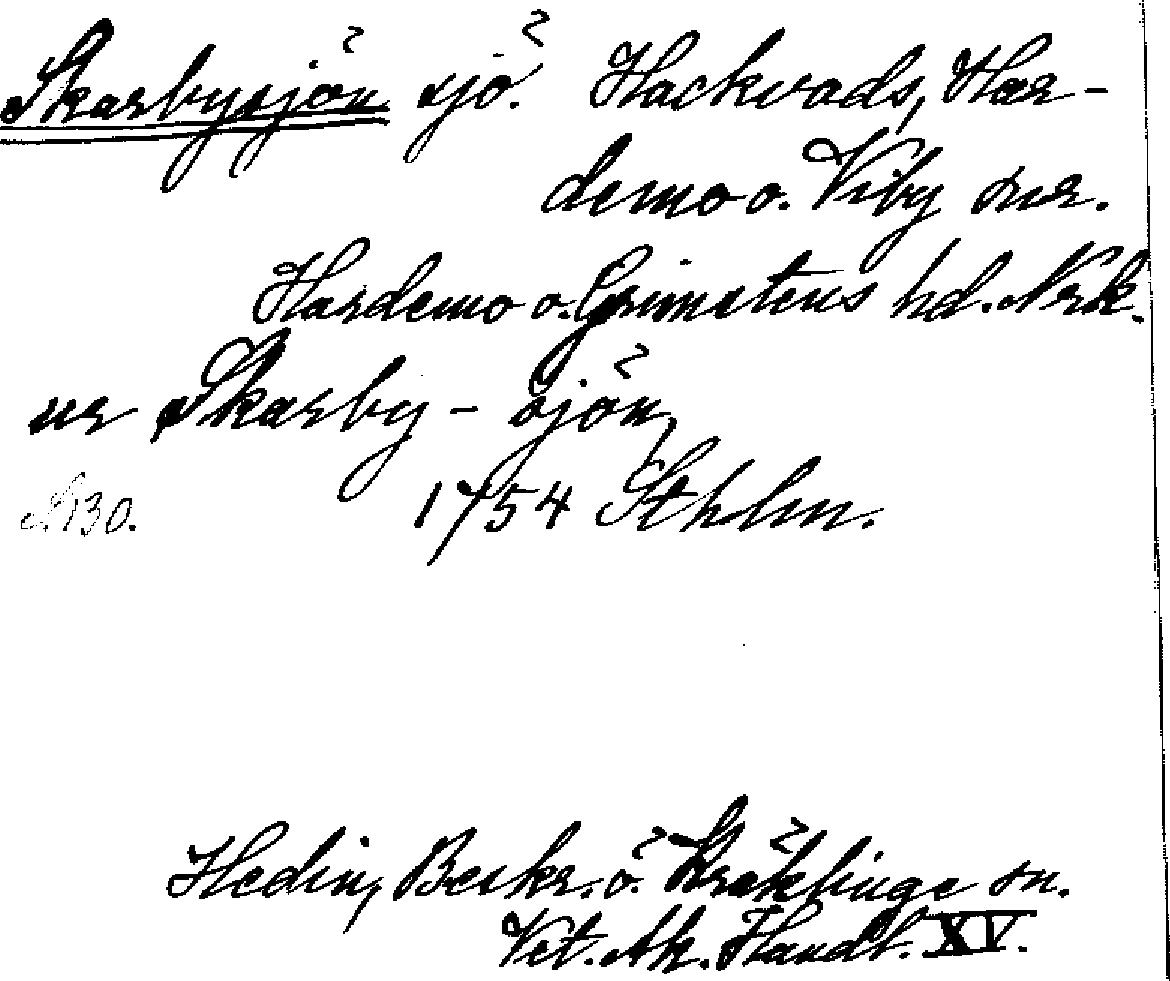 Skarbysjön sjö. Hackvads, Har-
demo o. Viby snr.
Hardemo o. Grimstens hd. Nrk.
ur Skarby - sjön,
N130. 1754 Sthlm.
Hedin, Beskr. ö. Kräklinge sn.
Vet. Ak. Handl. XV.